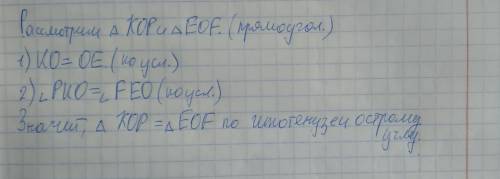 Рассмотрим △ KOP и △ EOF. (прямоугол.)
1) KO = OE. (по усл.)
2) ∠PKO = ∠FEO (по усл.)
Значит, △ KOP = △ EOF по гипотенузе и острому
углу.